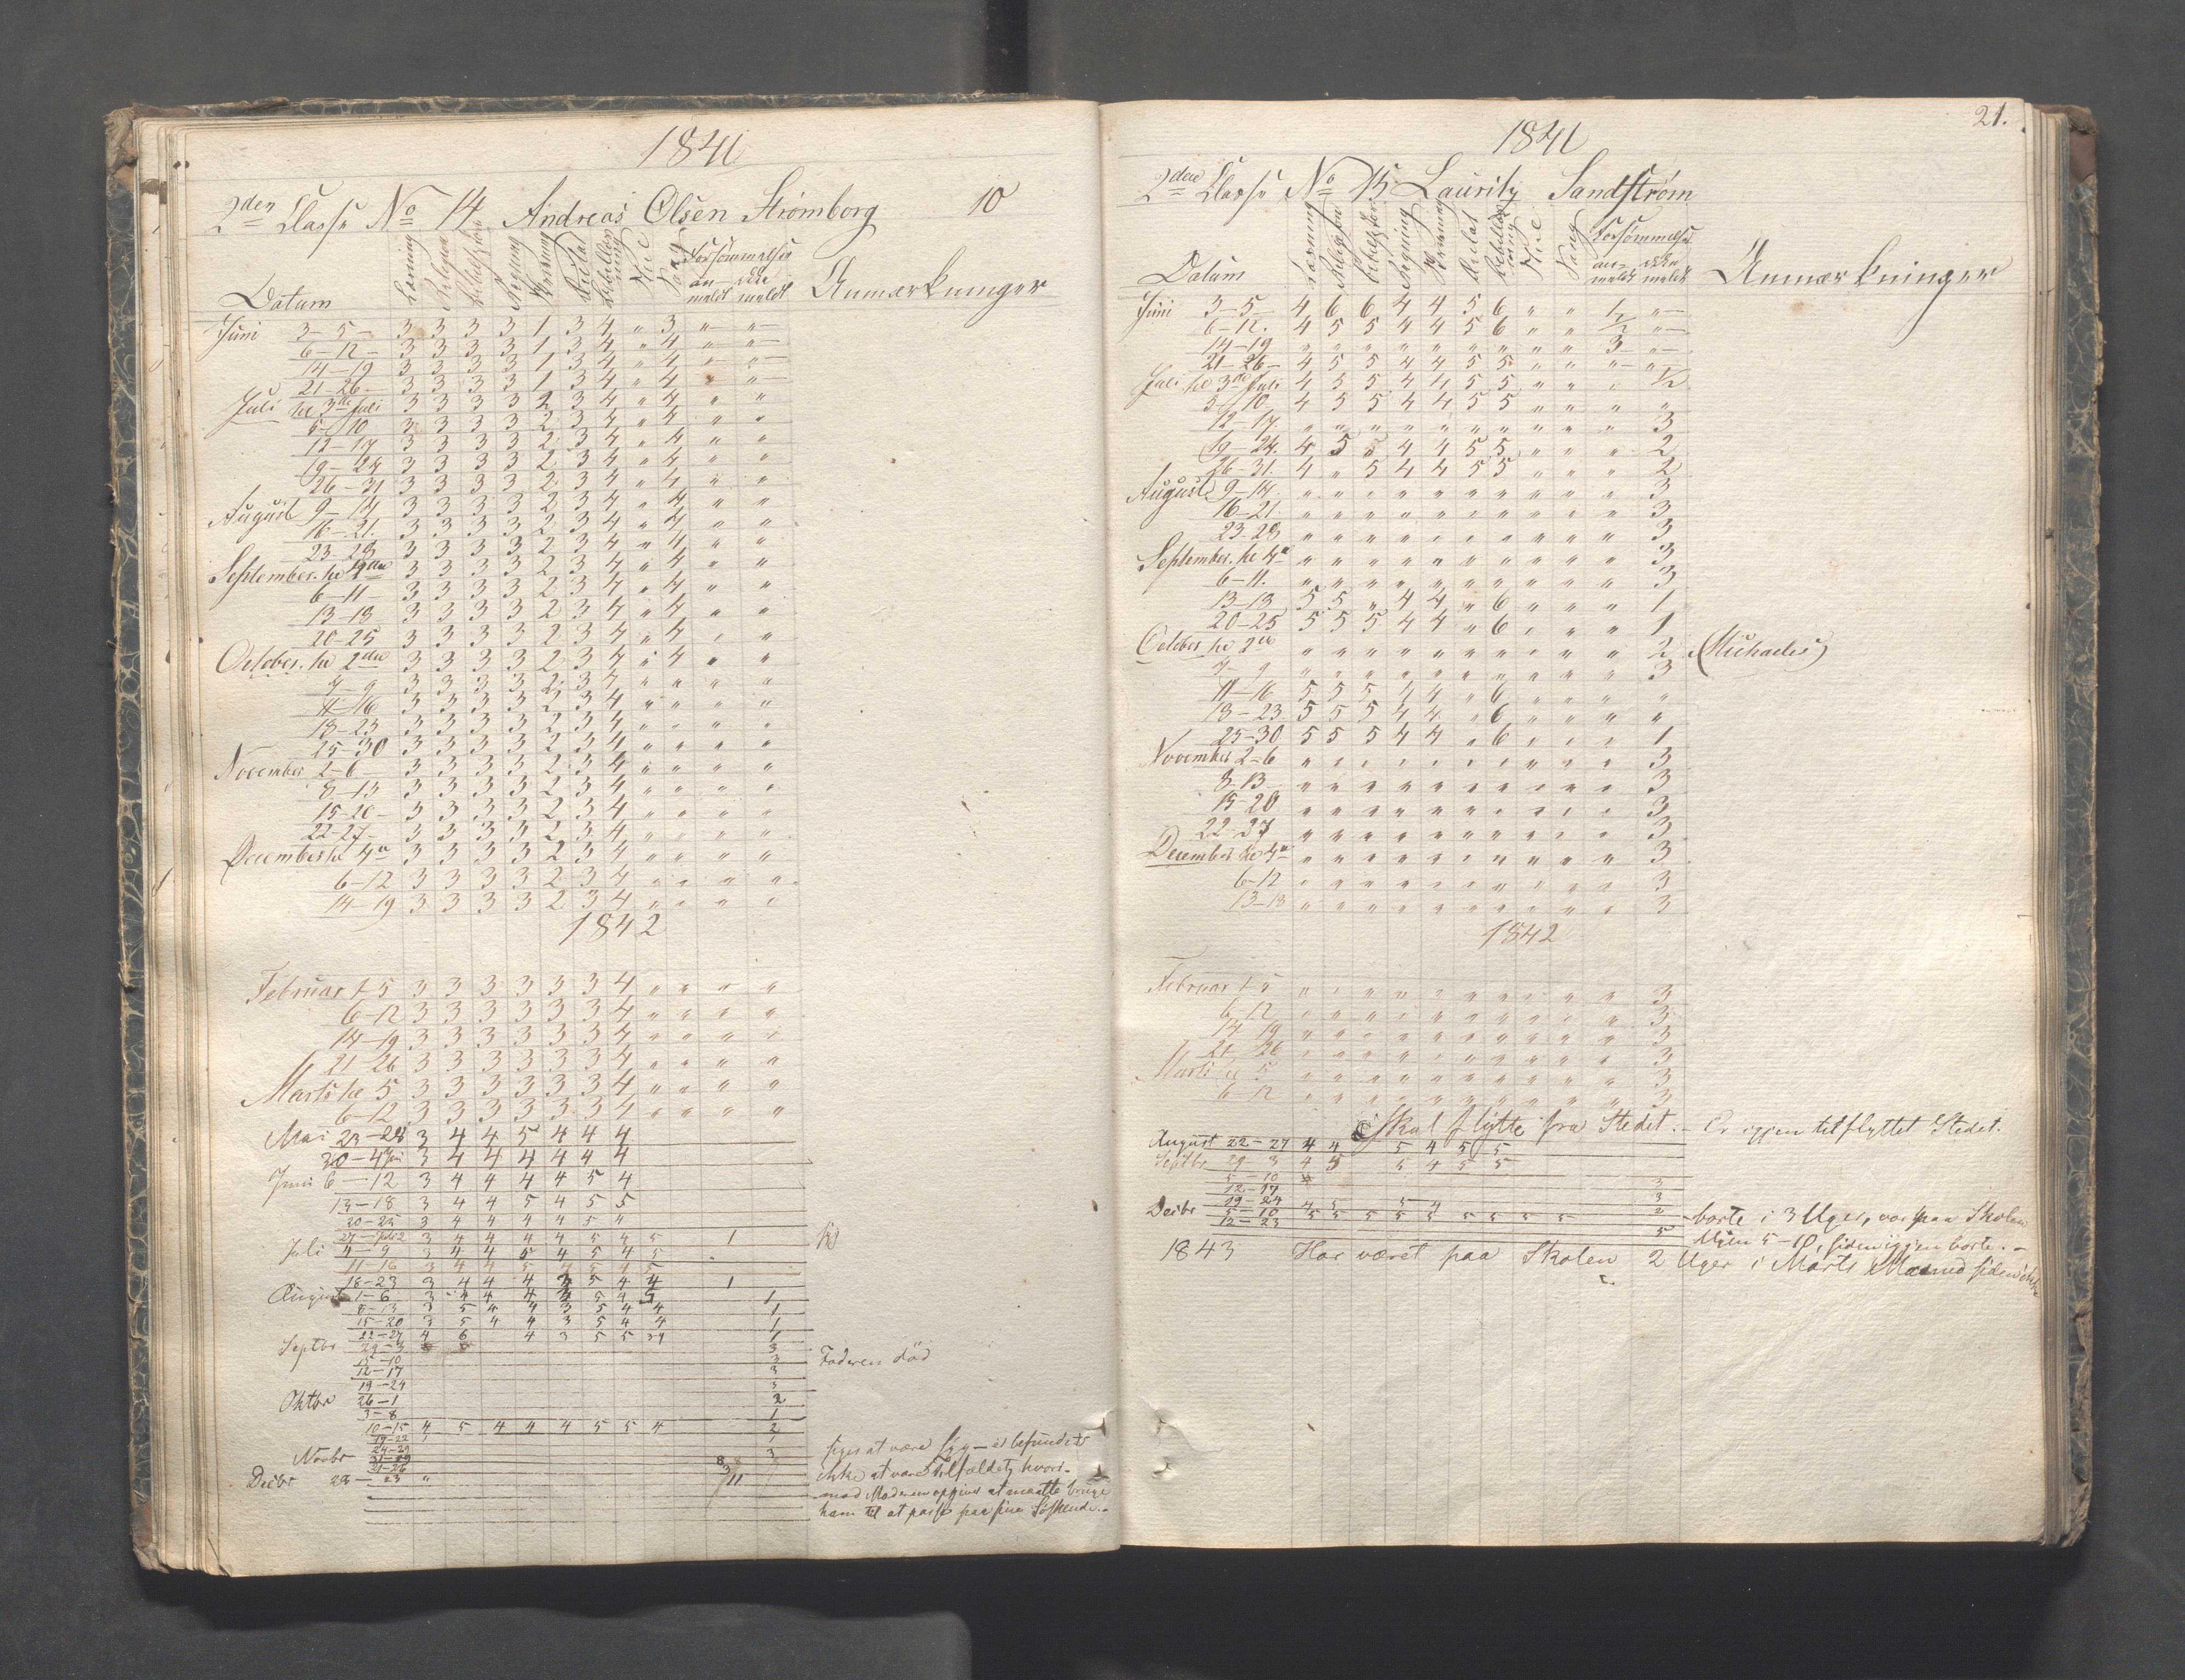 1841
2den Classe No 14. Andreas Olsen Strømborg 10
Datum Læsning Religion Skrivning Regning Sang Forsømmelser an- meldt ikke meldt Anmærkninger
Juni 3-5 3 3 3 3 1 3 4 " 3 " "
6-12 3 3 3 3 1 3 4 " 4 " "
14-19 3 3 3 3 1 3 4 " 4 " "
21-26 3 3 3 3 1 3 4 " 4 " "
Juli til 3die Juli 3 3 3 3 2 3 4 " 4 " "
5-10 3 3 3 3 2 3 4 " 4 " "
12-17 3 3 3 3 2 3 4 " 4 " "
19-24 3 3 3 3 2 3 4 " 4 " "
26-31 3 3 3 3 2 3 4 " 4 " "
August 9-14 3 3 3 3 2 3 4 " 4 " "
16-21. 3 3 3 3 2 3 4 " 4 " "
23-28 3 3 3 3 2 3 4 " 4 " "
September. 3 3 3 3 2 3 4 " 4 " "
6-11 3 3 3 3 2 3 4 " 4 " "
13-18 3 3 3 3 2 3 4 " 4 " "
20-25 3 3 3 3 2 3 4 " 4 " "
October. til 2den 3 3 3 3 2 3 4 " 4 " "
4-9 3 3 3 3 2 3 4 " " " "
11-16 3 3 3 3 2 3 4 " " " "
18-23 3 3 3 3 2 3 4 " " " "
25-30 3 3 3 3 2 3 4 " " " "
November 2-6 3 3 3 3 2 3 4 " " " "
8-13 3 3 3 3 2 3 4 " " " "
15-20 3 3 3 3 2 3 4 " " " "
22-27 3 3 3 3 2 3 4 " " " "
December til 4de 3 3 3 3 2 3 4 " " " "
6-12 3 3 3 3 2 3 4 " " " "
14-19 3 3 3 3 2 3 4 " " " "
1842
Februar 1-5 3 3 3 3 3 3 4 " " " "
6-12 3 3 3 3 3 3 4 " " " "
14-19 3 3 3 3 3 3 4 " " " "
21-26 3 3 3 3 3 3 4 " " " "
Marts til 5 3 3 3 3 3 3 4 " " " "
6-12 3 3 3 3 3 3 4 " " " "
Mai 23-28 3 4 4 5 4 4 4
30-4 Juni 3 4 4 4 4 4 4
Juni 6-12 3 4 4 4 4 5 4
13-18 3 4 4 5 4 5 5
20-25 3 4 4 4 4 5 4
27-Juli 2 3 4 4 4 4 5 4 5 1
Juli 4-9 3 4 4 5 4 5 4 5
11-16 3 4 4 5 4 5 4 5
18-23 3 4 4 4 3 5 4 4 1
August 1-6 3 4 4 4 3 5 4 5 1
8-13 3 5 4 4 3 5 4 4 1
15-20 3 5 4 4 3 5 4 4 1
22-27 4 6 4 3 5 5 1
Septbr 29-3 3
5-10 3 Faderen død
12-17 3
19-24 3
Oktbr 26-1 2
3-8 1
10-15 4 5 4 4 4 5 5 4 2
17-22 1
24-29 3
Novbr
21-26
Decbr 28-23 " 11
siges at være syg - er befundet
ikke at være Tilfældet, hvori-
mod Moderen opgives at maatte bruge
ham til at passe paa sine Søskende. -
21.
1841
2den Classe No 15. Lauritz Sandstrøm
Datum Læsning Religion Regning Sang Forsømmelser an- meldt ikke meldt Anmærkninger
Juni 3-5 4 6 6 4 4 5 6 " " 1/2 "
6-12. 4 5 5 4 4 5 6 " " 1/2 "
14-19 " " " " " " " " " 3 "
21-26 4 5 5 4 4 5 5 " " " "
Juli til 3die Juli 4 5 5 4 4 5 5 " " " 1/2
5-10 4 5 5 4 4 5 5 " " " "
12-17. " " " " " " " " " " 3
19-24. 4 5 " 4 4 5 5 " " " 2
26-31. 4 " 5 4 4 5 5 " " " 2
August 9-14. " " " " " " " " " " 3
16-21. " " " " " " " " " " 3
23-28 " " " " " " " " " " 3
September. til 4de " " " " " " " " " " 3
6-11. " " " " " " " " " " 3
13-18 5 5 " 4 4 " 6 " " " 1
20-25 5 5 5 4 4 " 6 " " " 1
October til 2de " " " " " " " " " " 2 (Michaelis)
4-9 " " " " " " " " " " 3
11-16 5 5 5 4 4 " 6 " " " "
18-23 5 5 5 4 4 " 6 " " " "
25-30 5 5 5 4 4 " 6 " " " 1
November 2-6 " " " " " " " " " " 3
8-13 " " " " " " " " " " 3
15-20 " " " " " " " " " " 3
22-27 " " " " " " " " " " 3
December til 4de " " " " " " " " " " 3
6-12 " " " " " " " " " " 3
13-18 " " " " " " " " " " 3
1842
Februar 1-5 " " " " " " " " " " 3
6-12 " " " " " " " " " " 3
14-19 " " " " " " " " " " 3
21-26 " " " " " " " " " " 3
Marts til 5 " " " " " " " " " " 3
6-12 " " " " " " " " " " 3
Skal flytte fra Stedet. - Er igjen tilflyttet Stedet.
August 22-27 4 4 5 4 5 5
Septbr 29-3 4 5 5 4 5 5
5-10 3
12-17 3
19-24 4 5 5 4 2
Decbr 5-10 5 5 5 5 5 5 5 5 5 borte i 3 Uger, var paa Skolen
12-23 5 Ugen 5-10, siden igjen borte. -
1843 Har været paa Skolen 2 Uger i Marts Maaned siden ikke